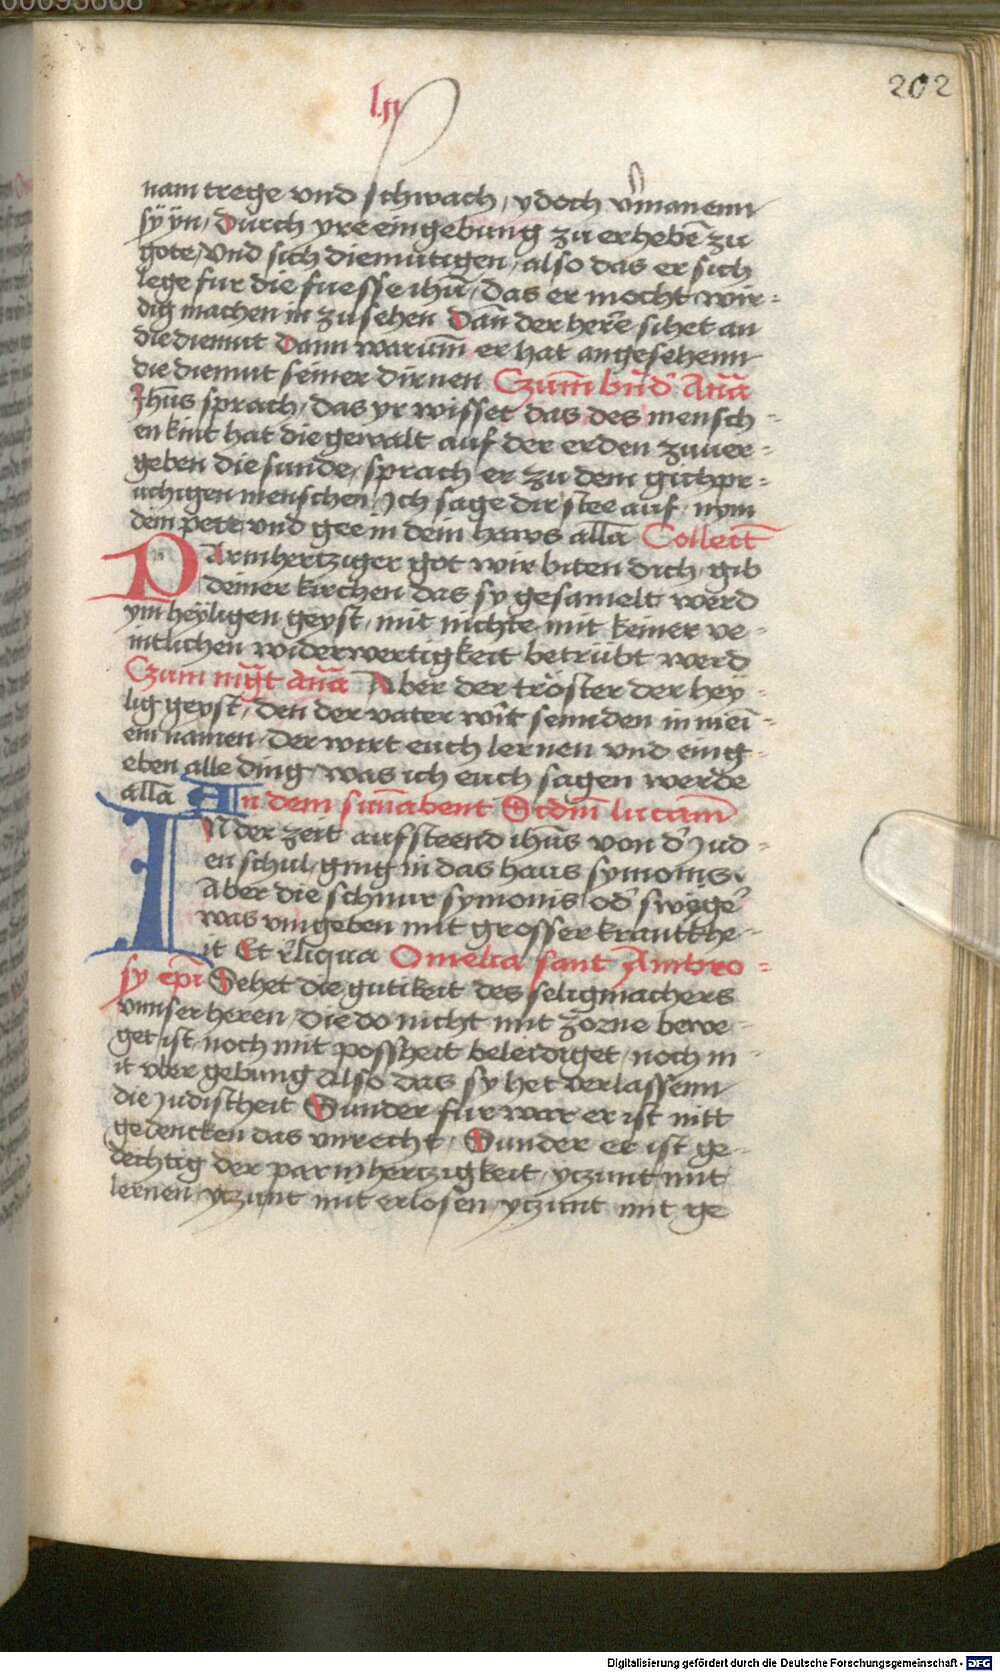 00093668
202
lxj
nam trege vnd schwach, ydoch v̄manenn
sÿ ÿn, Durch yre eingebung zu erhebē zu
gote, Vnd sich diemutigen, also das er sich
lege fur die fuesse ihū, das er mocht wir=
dig machen in zu sehen Dañ der herē sihet an
die diemut Dann warum̄ er hat angesehenn
die diemut seiner dirnen Czum̄ bn̄d' Anā
Jhūs sprach, das yr wisset das des mensch=
en kint hat die gewalt auf der erden zuuer=
geben die sunde, sprach er zu dem gichpr=
uchigen menschen, Ich sage dir stee auf, nym
dein pett vnd gee in dein haws allā Collect̄
PArmhertziger got wir biten dich, gib
deiner kirchen das sy gesamelt werd
ym heyligen geyst, mit nichte mit keiner ve=
intlichen widerwertigkeit betrubt werd
Czum mḡt Anā Aber der tröster der hey=
lig geyst, den der vater wirt sennden in mei=
em namen, der wirt euch lernen vnd eing=
eben alle ding, was ich euch sagen werde
allā An dem sun̄abent Scdm̄ lucam̄
IN der zeit aufsteend ihūs von d' Jud=
en schul, ging in das haus symonis.
Aber die schnur symonis od' sweger
was vmgeben mit grosser kranckhe=
it Et r̄liqua Omelia sant Ambro=
sy ep̄i Sehet die gutikeit des seligmachers
vnnser heren, die do nicht mit zorne bewe=
get ist, noch mit possheit beleidiget, noch m=
it vber gebung Also das sy het verlassenn
die Judischeit Sunder fur war er ist nitt
gedencken das vnrecht, Sunder er ist ge=
dechtig der parmhertzigkeit, yczunt mit
lernen, yczunt mit erlosen yczunt mit ge
Digitalisierung gefördert durch die Deutsche Forschungsgemeinschaft - DFG